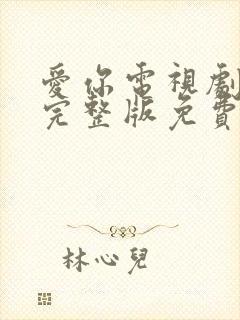 愛你電視劇
完整版免費
林心兒